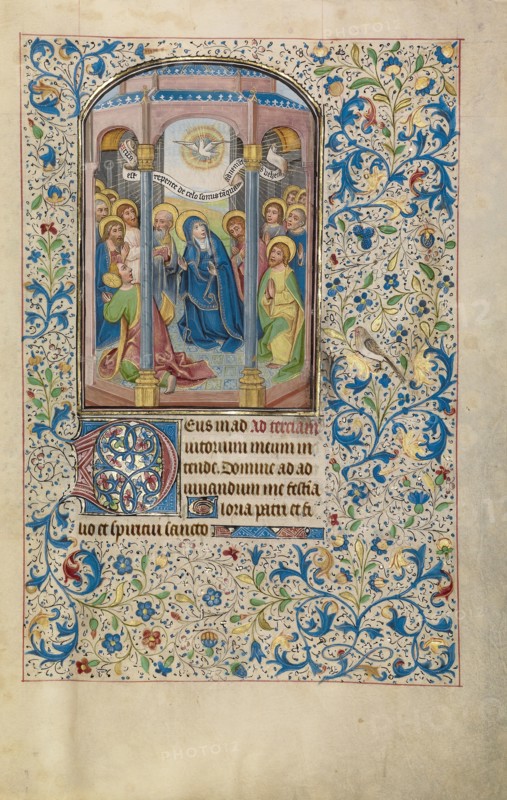 est repente de celo sonus tāquā
Eus in ad Ad terciam
iutorium meum in
tende. Domine ad ad
iuuandum me festia
loria patri et fi
lio et spiritui sancto
PHOTO12